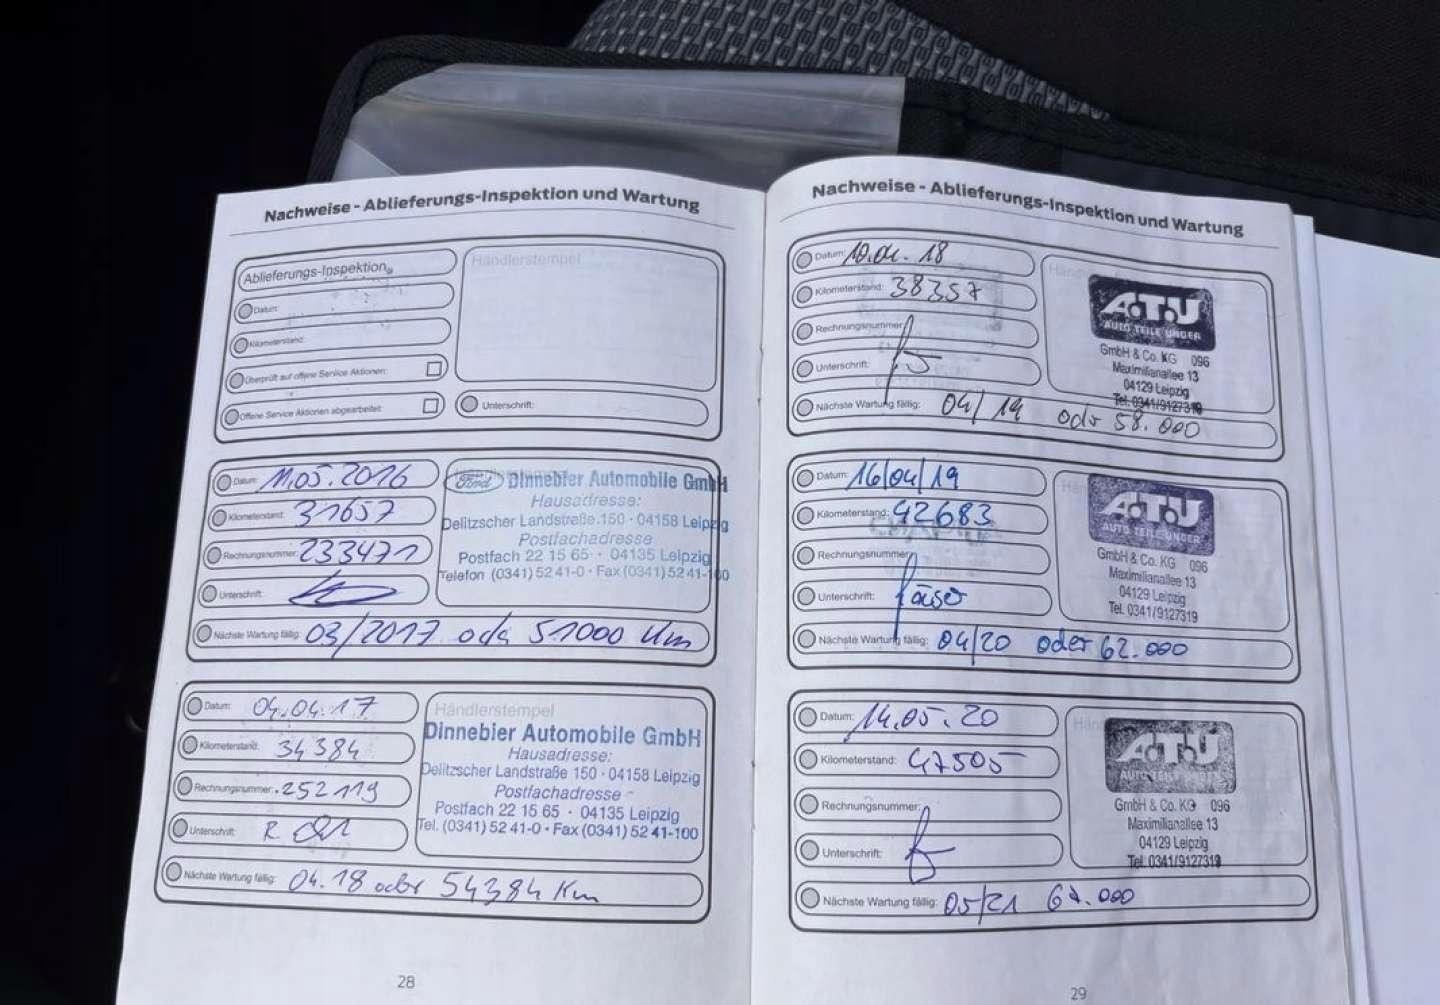 Nachweise - Ablieferungs-Inspektion und Wartung
Ablieferungs-Inspektion
Datum:
Kilometerstand:
Überprüft auf offene Service Aktionen:
Offene Service Aktionen abgearbeitet:
Händlerstempel
Unterschrift:
Datum: 11.05.2016
Kilometerstand: 31657
Rechnungsnummer: 233471
Unterschrift:
Nächste Wartung fällig: 03/2017 oder 51000 Km
Händlerstempel
Ford Dinnebier Automobile GmbH
Hausadresse:
Delitzscher Landstraße 150 · 04158 Leipzig
Postfachadresse
Postfach 22 15 65 · 04135 Leipzig
Telefon (0341) 52 41-0 · Fax (0341) 52 41-100
Datum: 04.04.17
Kilometerstand: 34384
Rechnungsnummer: 252119
Unterschrift:
Nächste Wartung fällig: 04.18 oder 54384 Km
Händlerstempel
Dinnebier Automobile GmbH
Hausadresse:
Delitzscher Landstraße 150 · 04158 Leipzig
Postfachadresse
Postfach 22 15 65 · 04135 Leipzig
Tel. (0341) 52 41-0 · Fax (0341) 52 41-100
28
Nachweise - Ablieferungs-Inspektion und Wartung
Datum: 10.04.18
Kilometerstand: 38357
Rechnungsnummer:
Unterschrift:
Nächste Wartung fällig: 04/19 oder 58.000
A.T.U
AUTO TEILE UNGER
GmbH & Co. KG 096
Maximilianallee 13
04129 Leipzig
Tel. 0341/9127319
Datum: 16/04/19
Kilometerstand: 42683
Rechnungsnummer:
Unterschrift:
Nächste Wartung fällig: 04/20 oder 62.000
A.T.U
AUTO TEILE UNGER
GmbH & Co. KG 096
Maximilianallee 13
04129 Leipzig
Tel. 0341/9127319
Datum: 14.05.20
Kilometerstand: 47505
Rechnungsnummer:
Unterschrift:
Nächste Wartung fällig: 05/21 67.000
A.T.U
AUTO TEILE UNGER
GmbH & Co. KG 096
Maximilianallee 13
04129 Leipzig
Tel. 0341/9127319
29